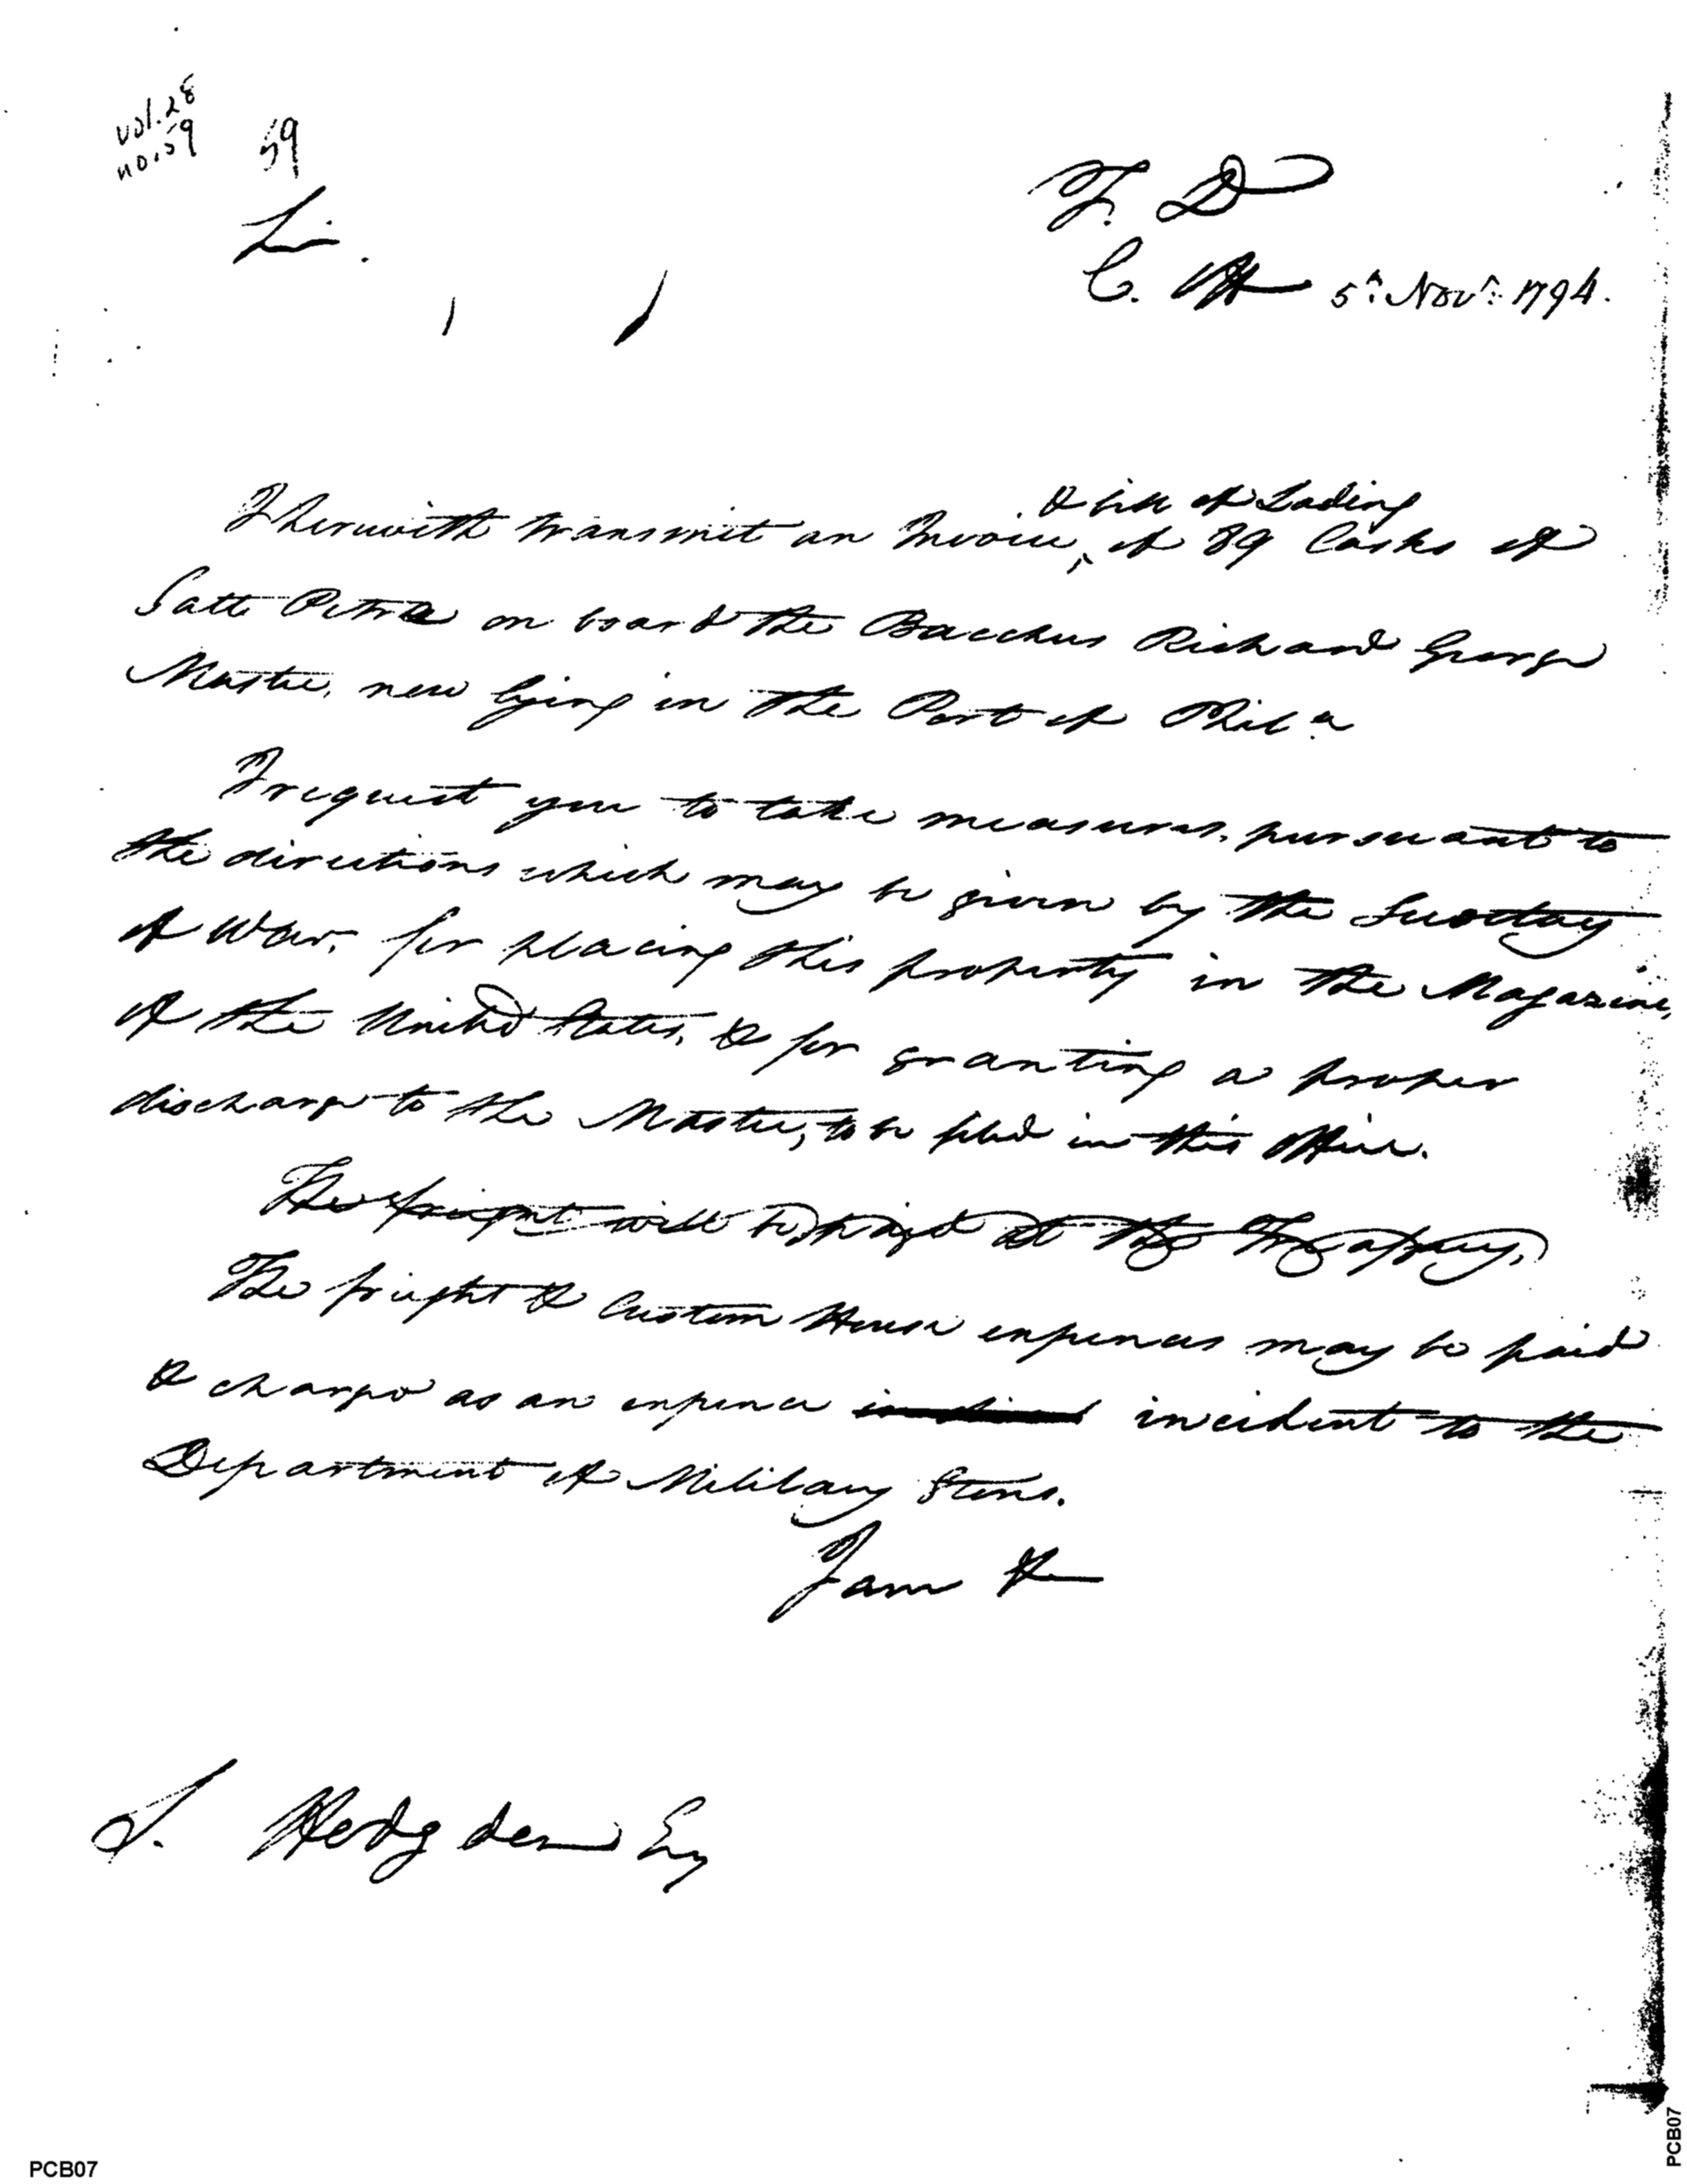 vol. 28
no. 59
59
Sir.
T. D
C. Off 5th Novr. 1794.
& bill of Lading
I herewith transmit an Invoice, of 89 Casks of
Salt Petre on board the Bacchus Richard George
Master, now lying in the Port of Phila
I request you to take measures, pursuant to
the directions which may be given by the Secretary
of War, for placing this property in the Magazine,
of the United States, & for granting a proper
discharge to the Master, to be filed in this Office.
The freight will be paid at the Treasury.
The freight & Custom House expences may be paid
& charged as an expence incident to the
Department of Military Stores.
I am &
S. Hodgdon Esq
PCB07
PCB07